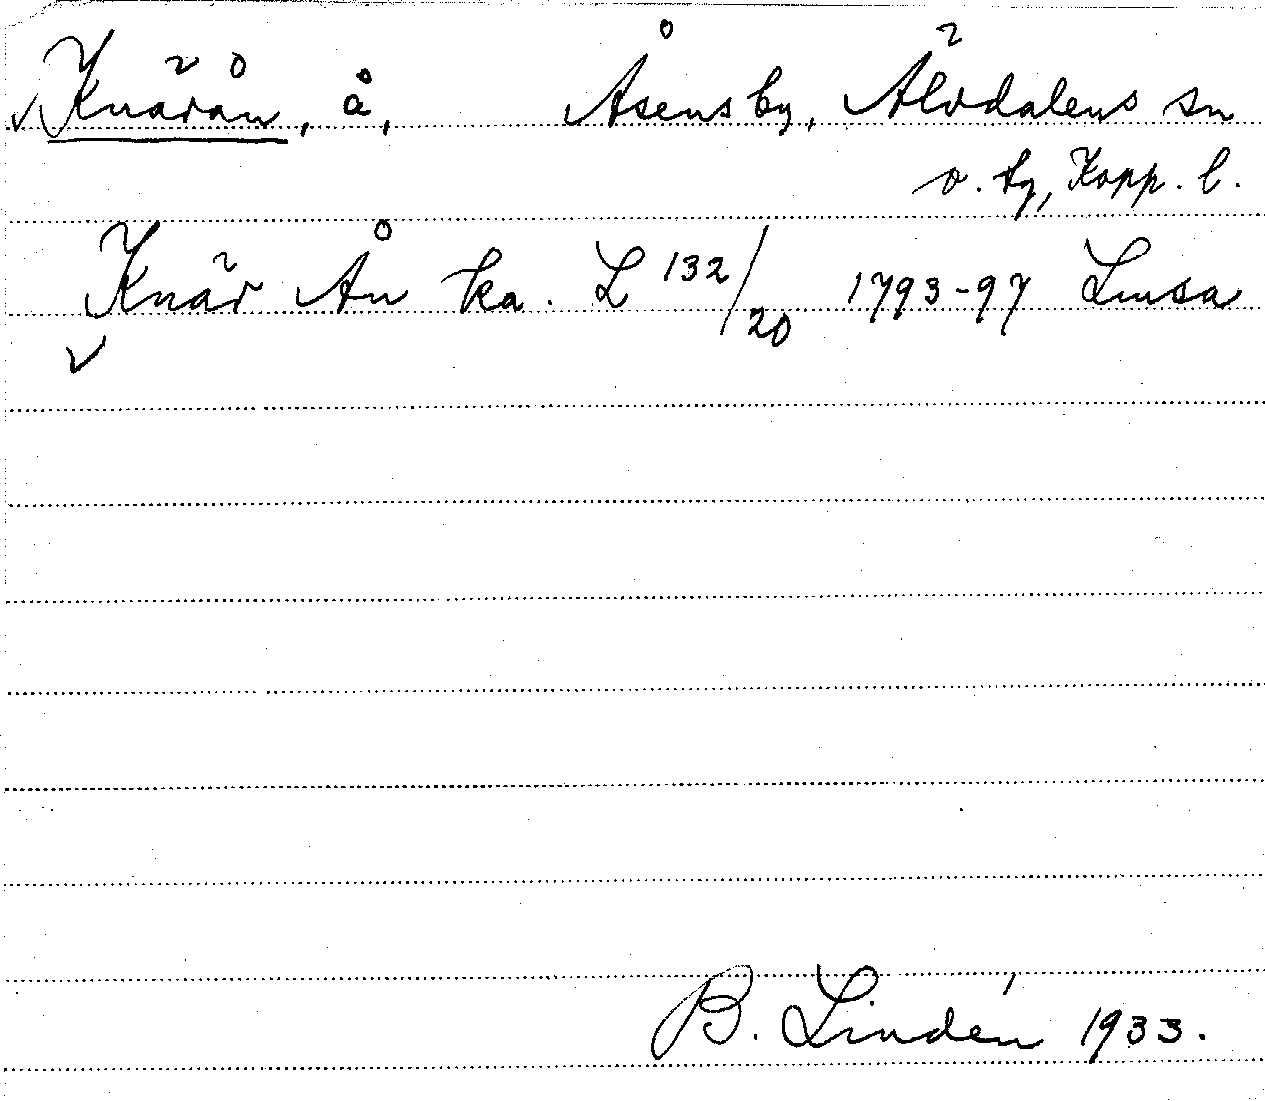 Knärån, å, Åsens by, Älvdalens sn
o. tg, Kopp. l.
Knär Ån ka. L 132/20 1793-97 Lmsa
B. Lindén 1933.